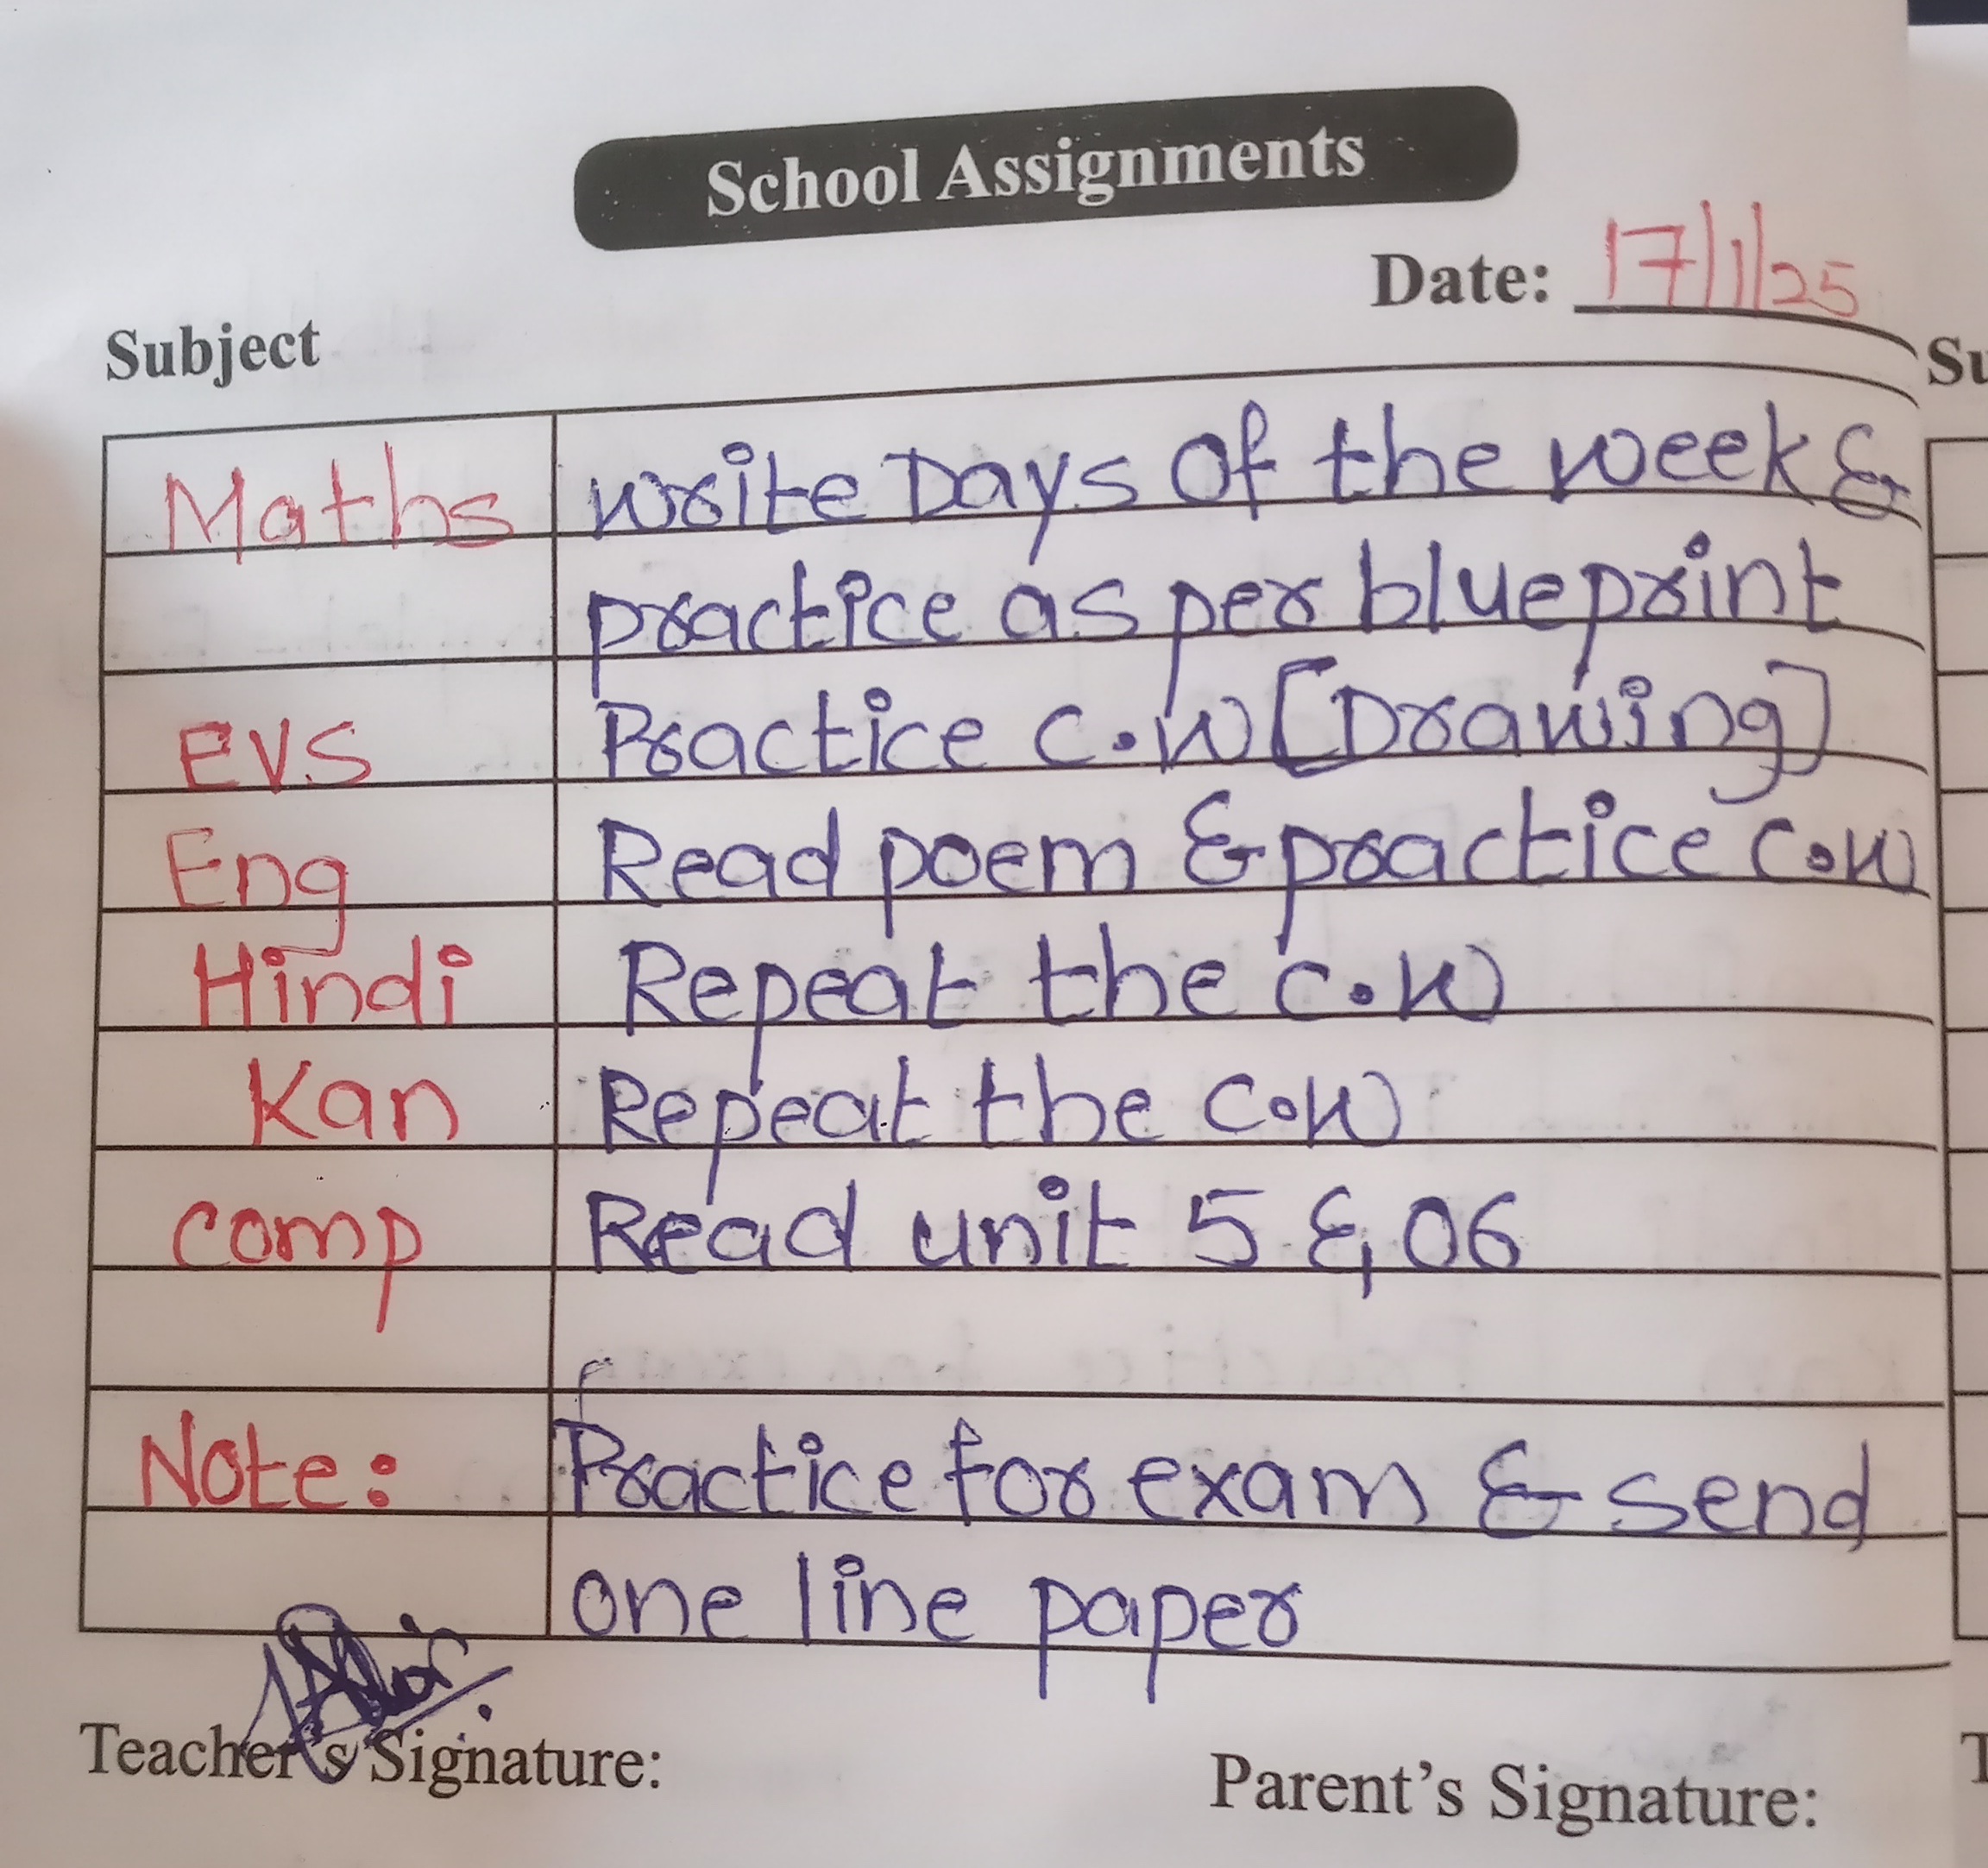 School Assignments
Date: 17/1/25
Subject
Su
Maths write Days of the week &
practice as per blueprint
EVS Practice C.W [Drawing]
Eng Read poem & practice C.W
Hindi Repeat the C.W
Kan Repeat the C.W
comp Read unit 5 & 06
Note: Practice for exam & send
one line paper
Teacher's Signature:
Parent's Signature: